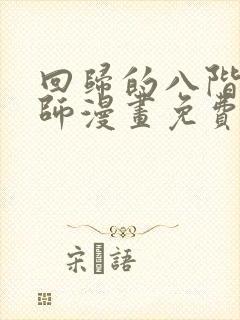 回歸的八階
師漫畫免費
宋 語